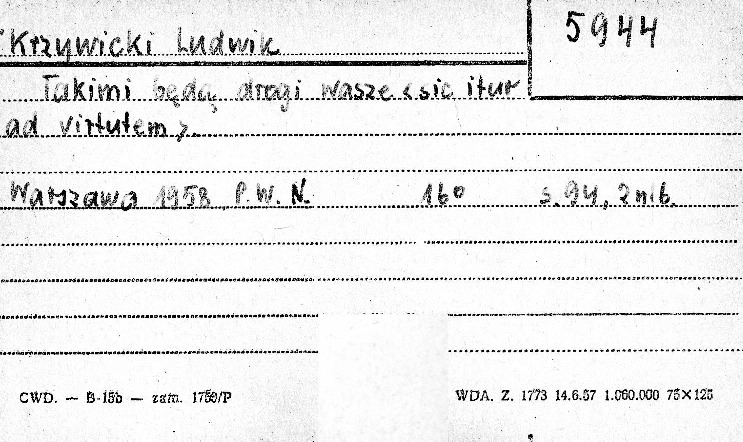 5944
Krzywicki Ludwik
Takimi będą drogi wasze <sic itur
ad virtutem>.
Warszawa 1958 P.W.N. 16° s. 94, 2 nlb.
CWD. — B-15b — zam. 1759/P
WDA. Z. 1773 14.6.57 1.060.000 75×125